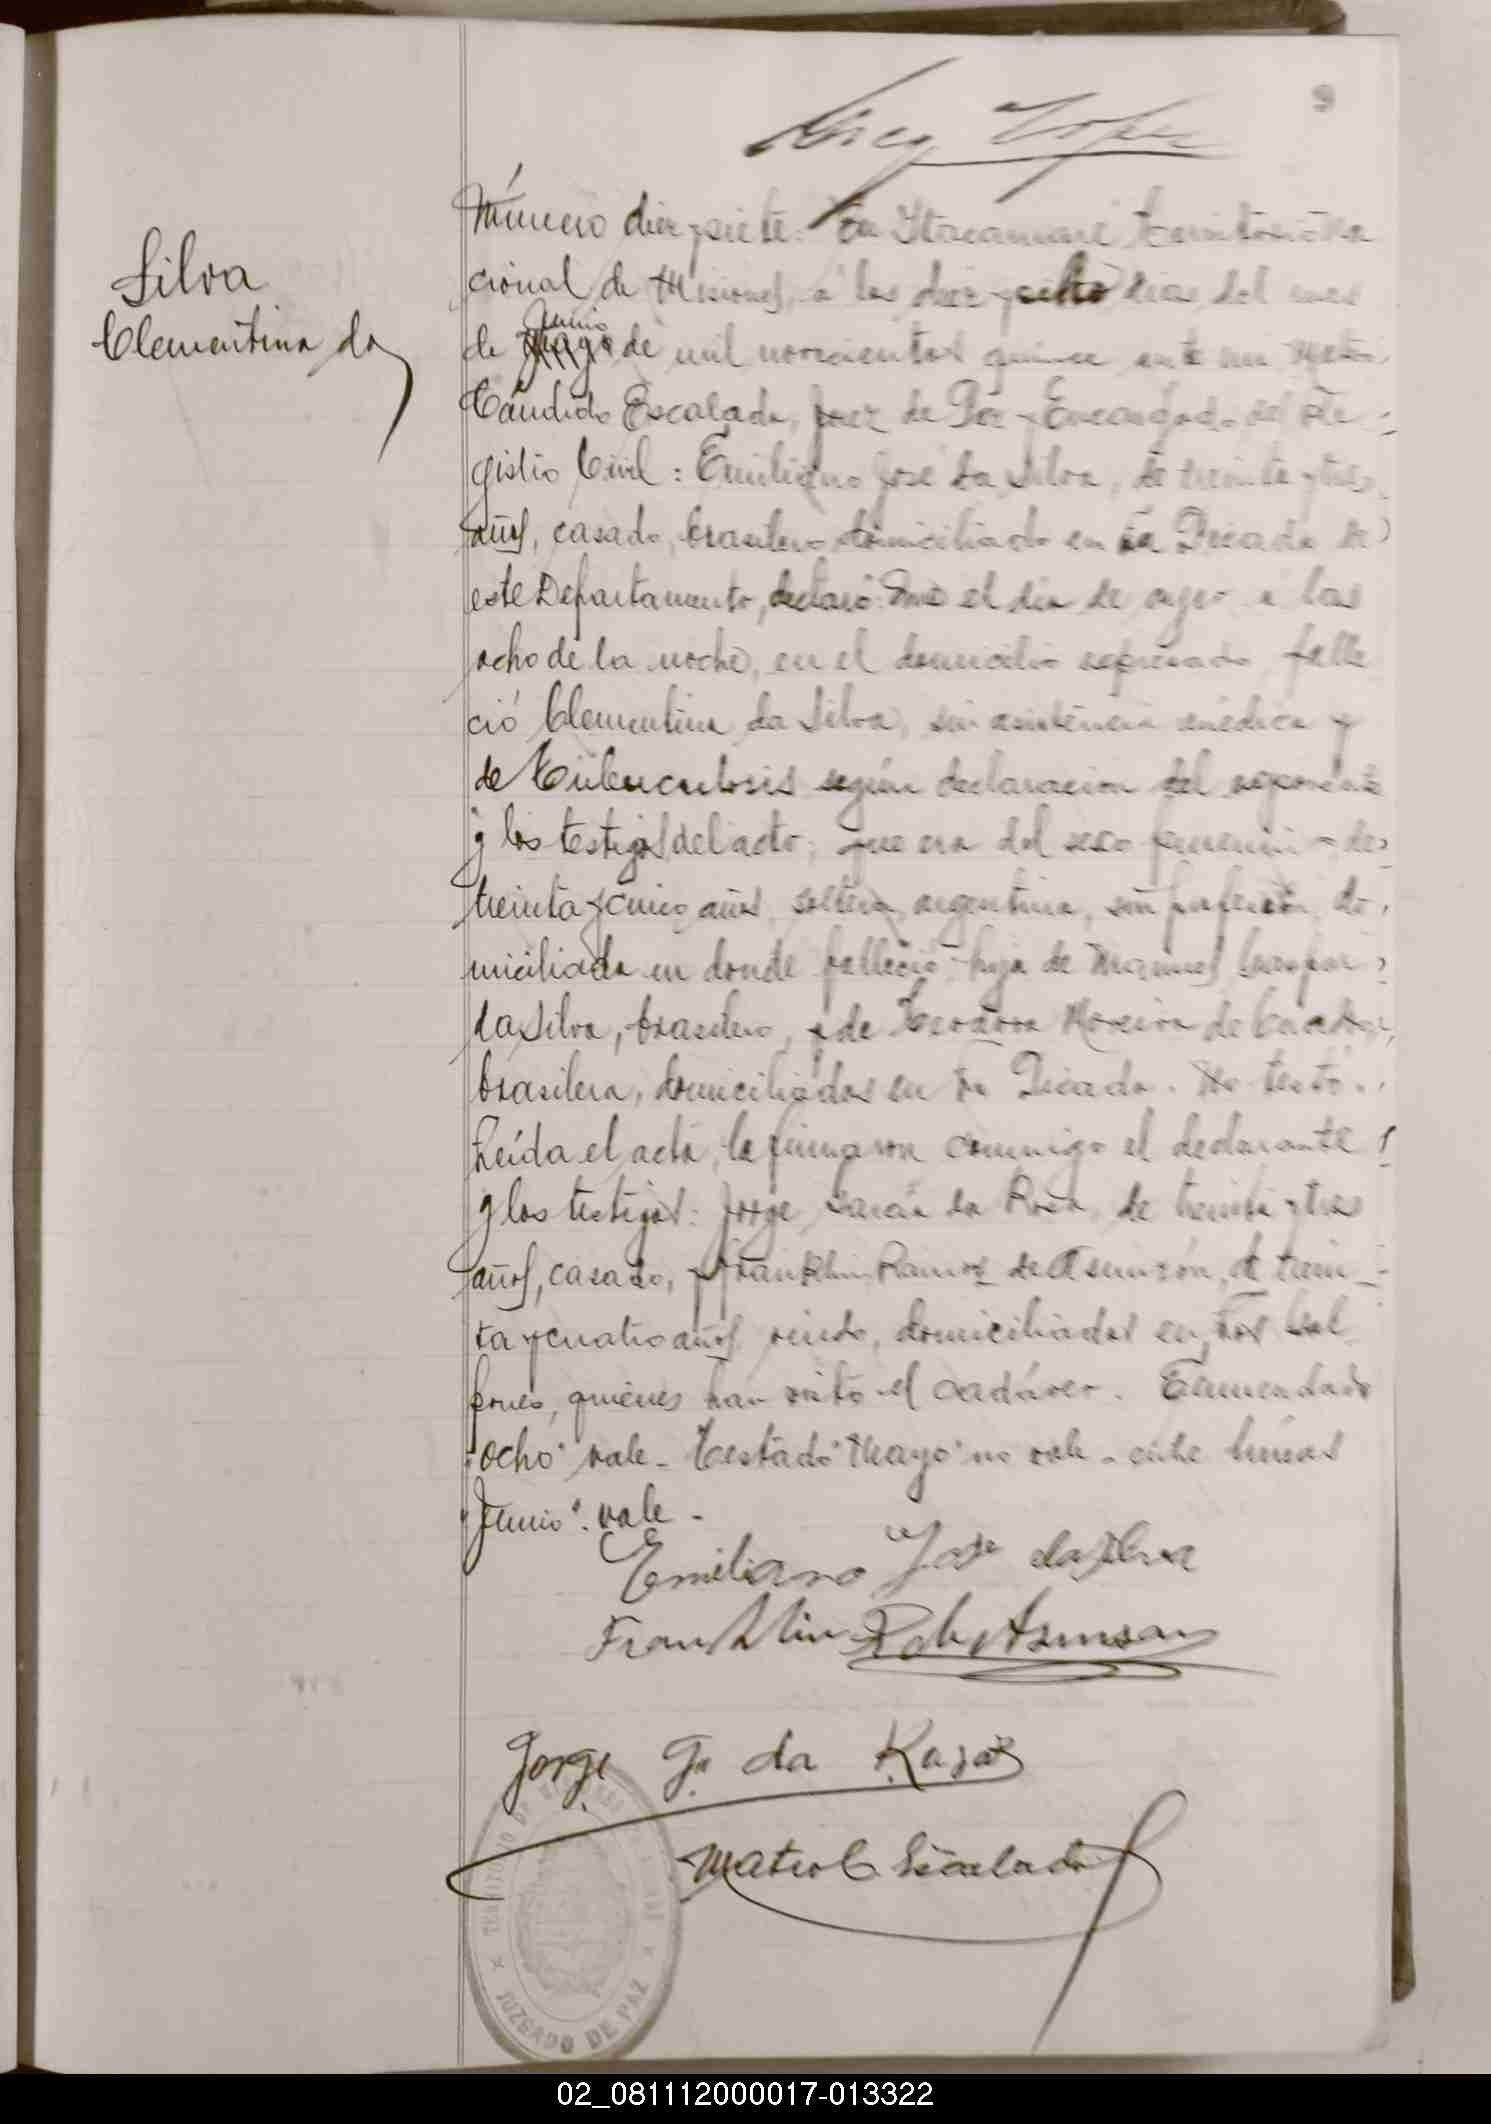 9
Silva
Clementina da
Número diez y siete: En Itacaruaré Territorio Na
cional de Misiones, a los diez y ocho dias del mes
de Mayo Junio de mil novecientos quince ante mi Mateo
Cándido Escalada, Juez de Paz y Encargado del Re-
gistro Civil: Emiliano José da Silva, de treinta y tres
años, casado, brasilero, domiciliado en La Picada de
este Departamento, declaró: Que el dia de ayer a las
ocho de la noche, en el domicilio expresado, falle
ció Clementina da Silva, sin asistencia médica y
de Tuberculosis según declaracion del exponente
y los testigos del acto; que era del sexo femenino, de
treinta y cinco años, soltera, argentina, sin profesión, do
miciliada en donde falleció: hija de Manuel
da Silva, brasilero, y de Teodora Moreira de
brasilera, domiciliados en La Picada. No testó.
Leída el acta, la firmaron conmigo el declarante
y los testigos: Jorge García da Rosa, de treinta y tres
años, casado, y Franklin Ramos de Asunsón, de trein-
ta y cuatro años, viudo, domiciliados en Tres
quienes han visto el cadáver. Enmendado
"ocho" vale - Testado "Mayo" no vale - entre líneas
"Junio". vale -
Emiliano José da Silva
Franklin R de Asunson
Jorge G. da Rosa
Mateo C. Escalada
TERRITORIO DE MISIONES
JUZGADO DE PAZ
02_081112000017-013322